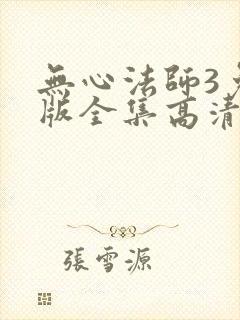 無心法師3
版全集高清
張雪源